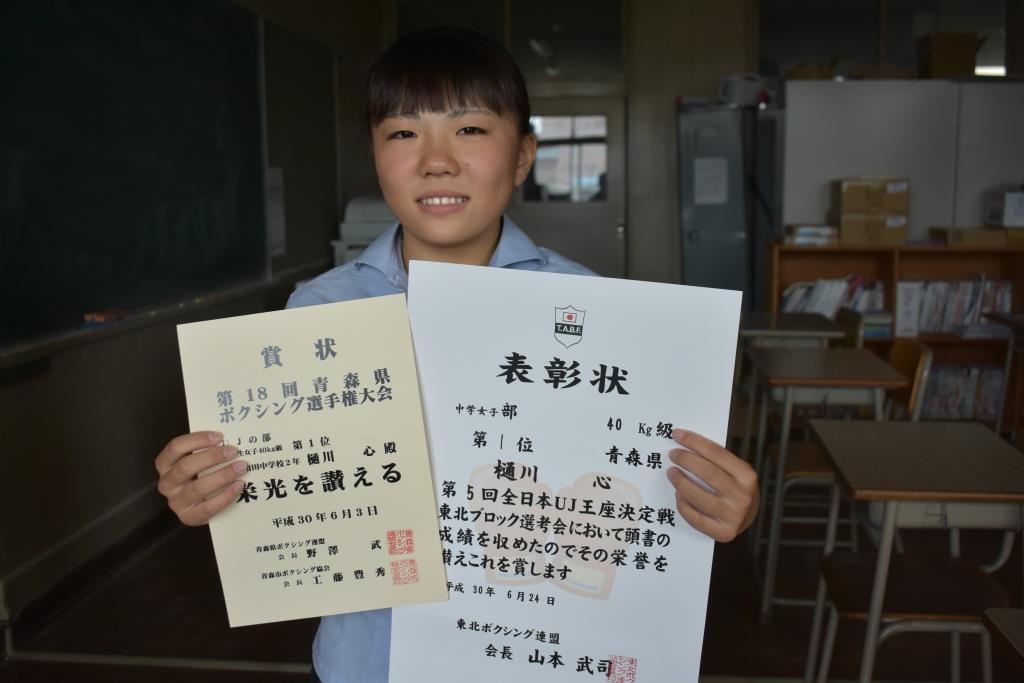 賞状
第18回青森県
ボクシング選手権大会
Jの部
生女子40kg級 第1位
田中学校2年 樋川 心 殿
栄光を讃える
平成30年6月3日
青森県ボクシング連盟
会長 野澤 武
青森市ボクシング協会
会長 工藤豊秀
T.A.B.F.
表彰状
中学女子部 40Kg級
第1位 青森県
樋川 心
第5回全日本UJ王座決定戦
東北ブロック選考会において頭書の
成績を収めたのでその栄誉を
讃えこれを賞します
平成30年6月24日
東北ボクシング連盟
会長 山本武司